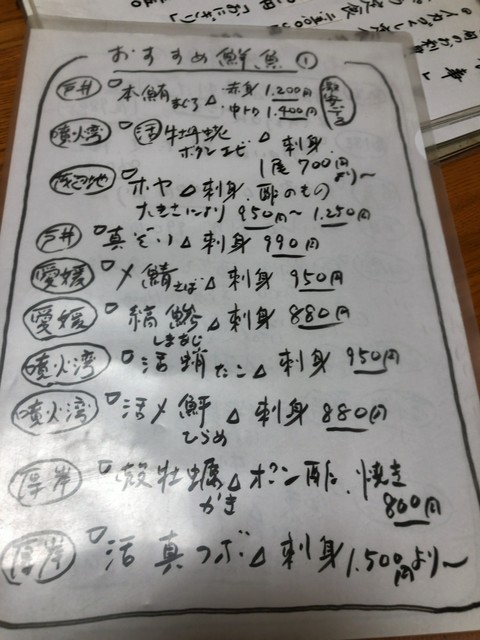 おすすめ鮮魚 ①
戸井 本鮪 まぐろ △ 赤身 1.200円
中トロ 1.400円
噴火湾 活 牡丹蝦 △ 刺身
ボタンエビ 1尾 700円より〜
ホヤ △ 刺身、酢のもの
大きさにより 950円〜1.250円
戸井 真ぞい △ 刺身 990円
愛媛 〆鯖 さば △ 刺身 950円
愛媛 縞鯵 △ 刺身 880円
しまあじ
噴火湾 活蛸 たこ △ 刺身 950円
噴火湾 活〆鮃 △ 刺身 880円
ひらめ
厚岸 殻牡蠣 △ ポン酢、焼き
かき 800円
厚岸 活真つぶ △ 刺身 1.500円より〜